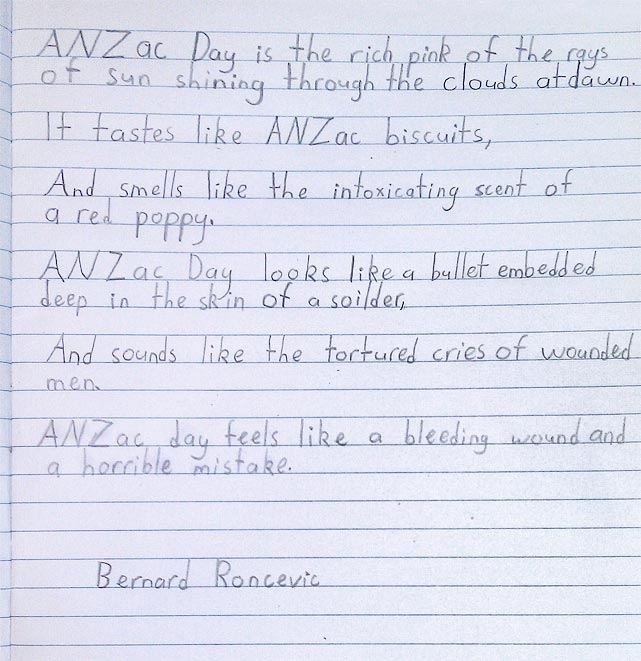 ANZac Day is the rich pink of the rays
of sun shining through the clouds at dawn.
It tastes like ANZac biscuits,
And smells like the intoxicating scent of
a red poppy.
ANZac Day looks like a bullet embedded
deep in the skin of a soilder,
And sounds like the tortured cries of wounded
men.
ANZac day feels like a bleeding wound and
a horrible mistake.
Bernard Roncevic